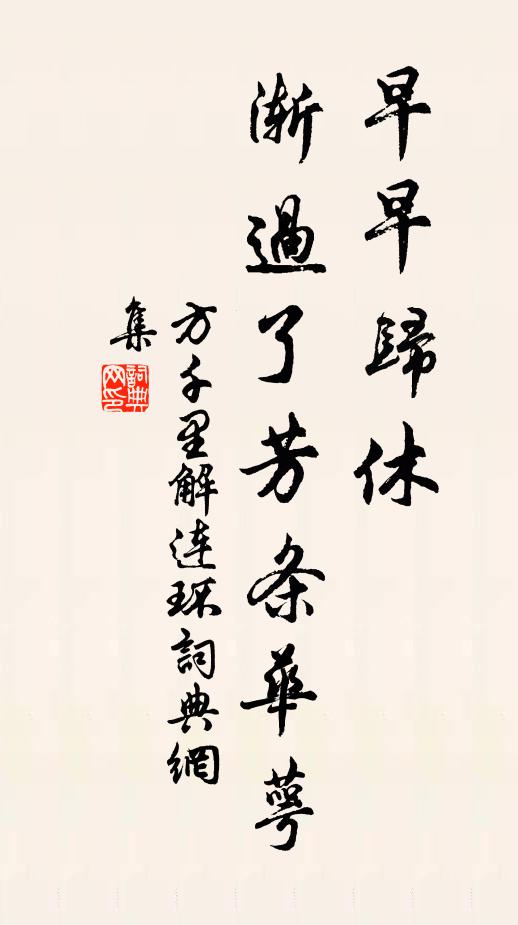 早早歸休
漸過了芳条華萼
方千里解連环詞典網
集
詞典
网印